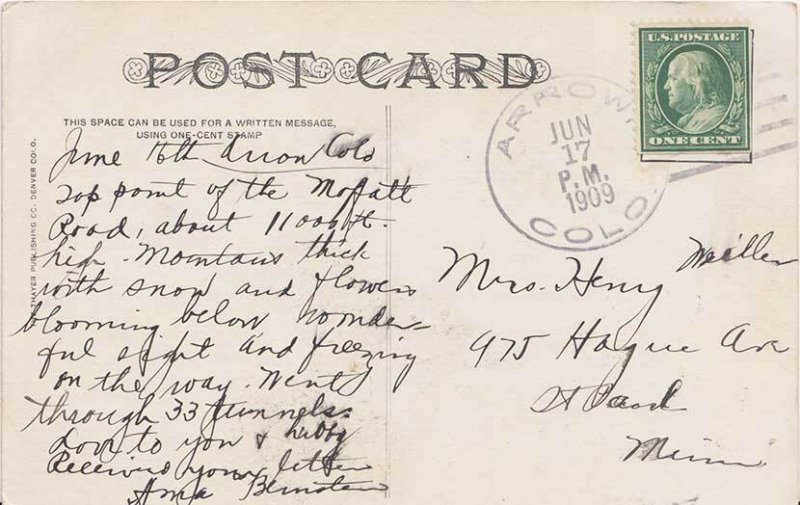 POST CARD
THIS SPACE CAN BE USED FOR A WRITTEN MESSAGE,
USING ONE-CENT STAMP
THAYER PUBLISHING CO. DENVER COLO.
June 16th Arron Colo
Top point of the Moffatt
Road, about 11000 ft.
high. Mountains thick
with snow and flowers
blooming below wonder-
ful sight and freezing
on the way. Went
through 33 tunnels.
Love to you & hubby
Received your letter
Bernstein
U.S. POSTAGE
ONE CENT
ARROW
JUN
17
P.M.
1909
COLO.
Mrs. Henry Weiller
975 Hague Ave
St Paul
Minn